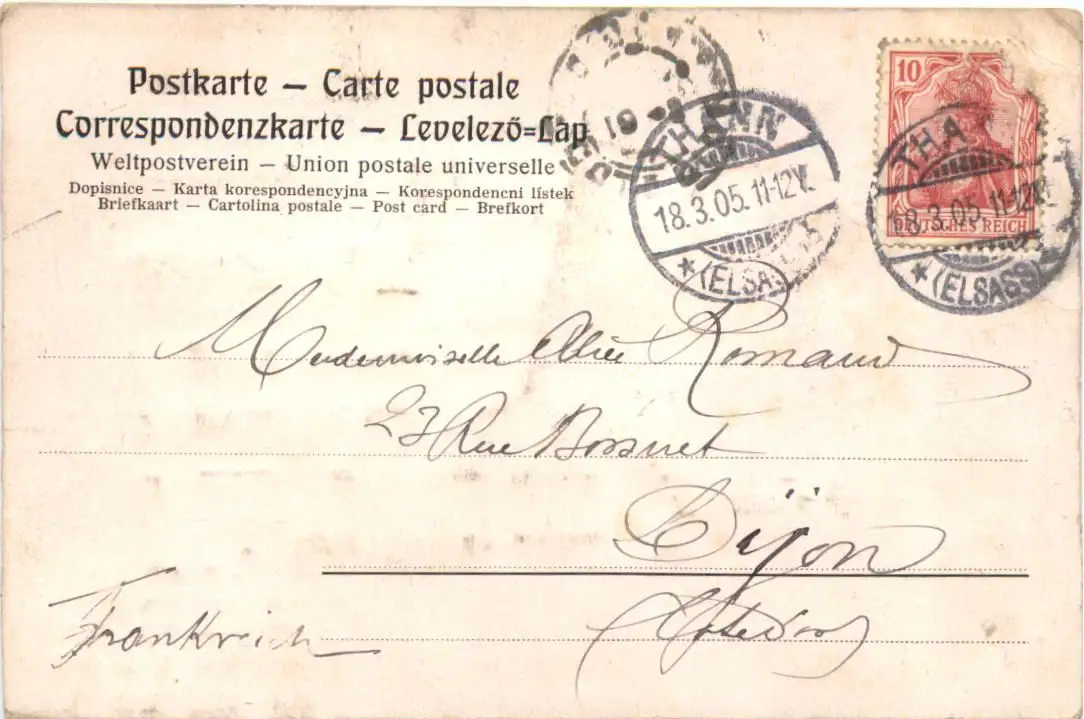 Postkarte — Carte postale
Correspondenzkarte — Levelező=Lap
Weltpostverein — Union postale universelle
Dopisnice — Karta korespondencyjna — Korespondencni lístek
Briefkaart — Cartolina postale — Post card — Brefkort
THANN
18.3.05.11-12V.
*(ELSASS)
10
DEUTSCHES REICH
THA
18.3.05.11-12V.
*(ELSASS)
Mademoiselle Romand
23 Rue Bossuet
Dijon
Frankreich
(Côte d'or)